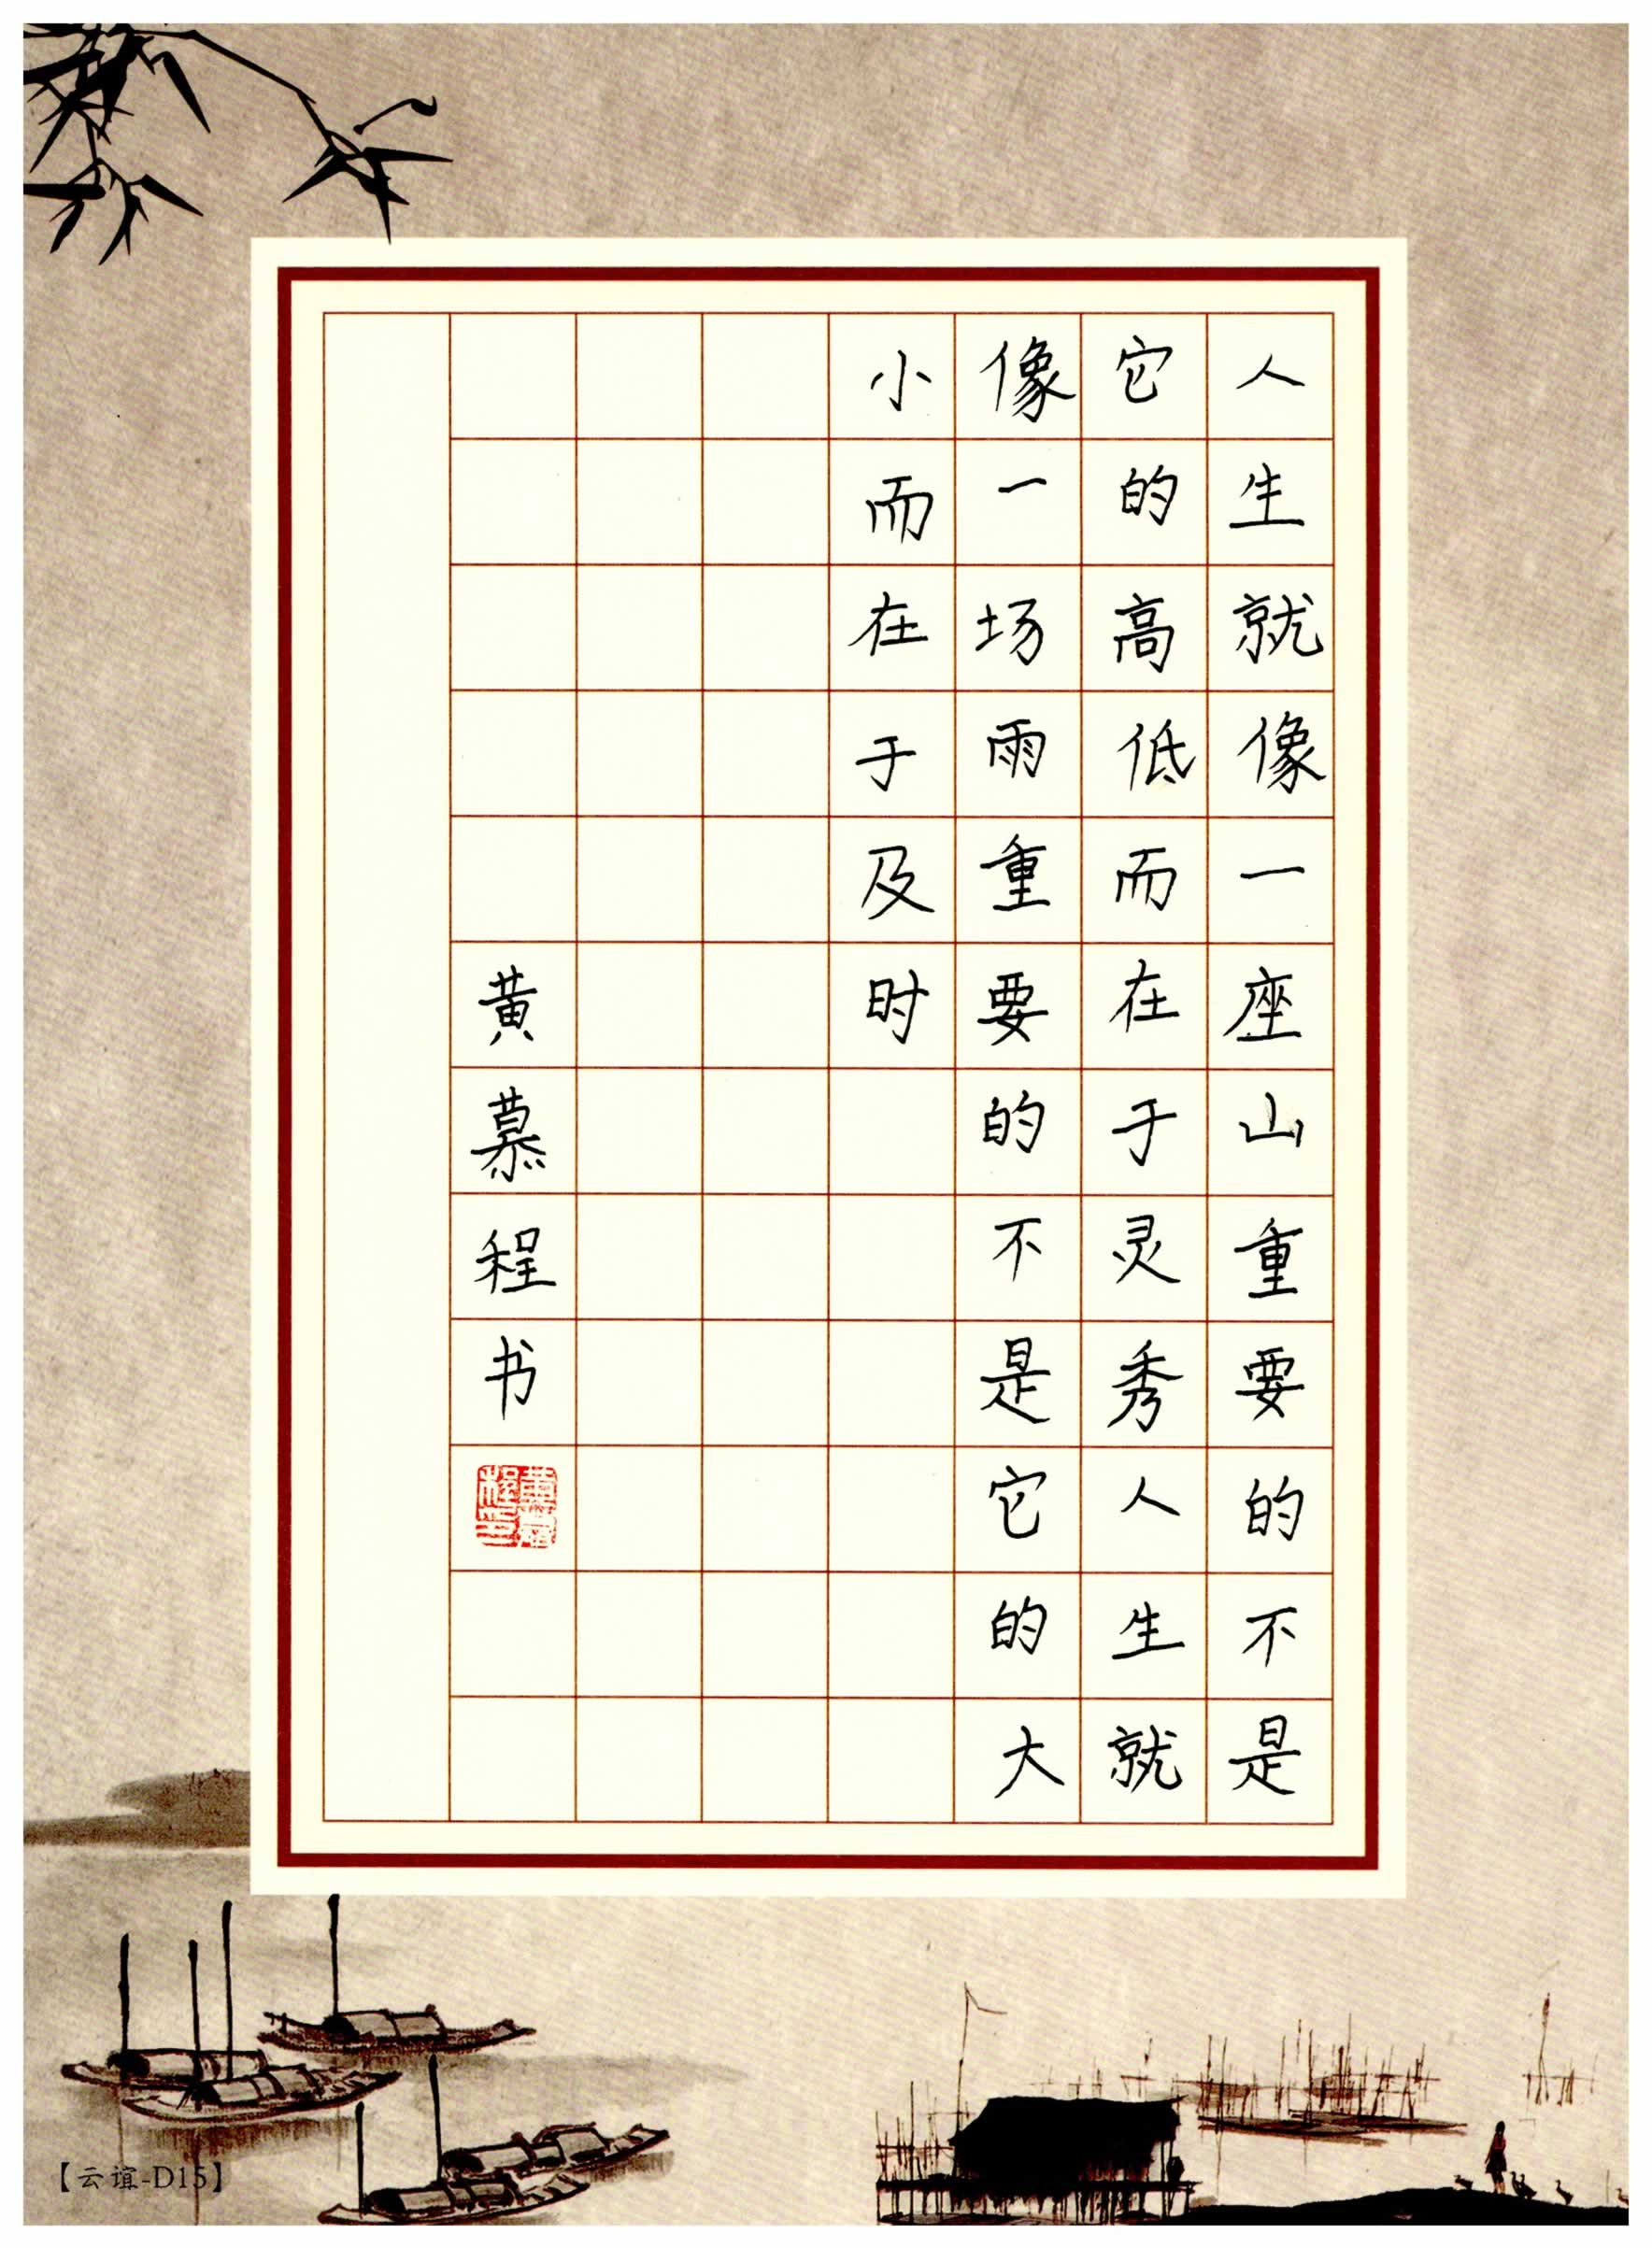 人生就像一座山重要的不是
它的高低而在于灵秀人生就
像一场雨重要的不是它的大
小而在于及时
黄慕程书
黄慕程印
【云谊-D15】